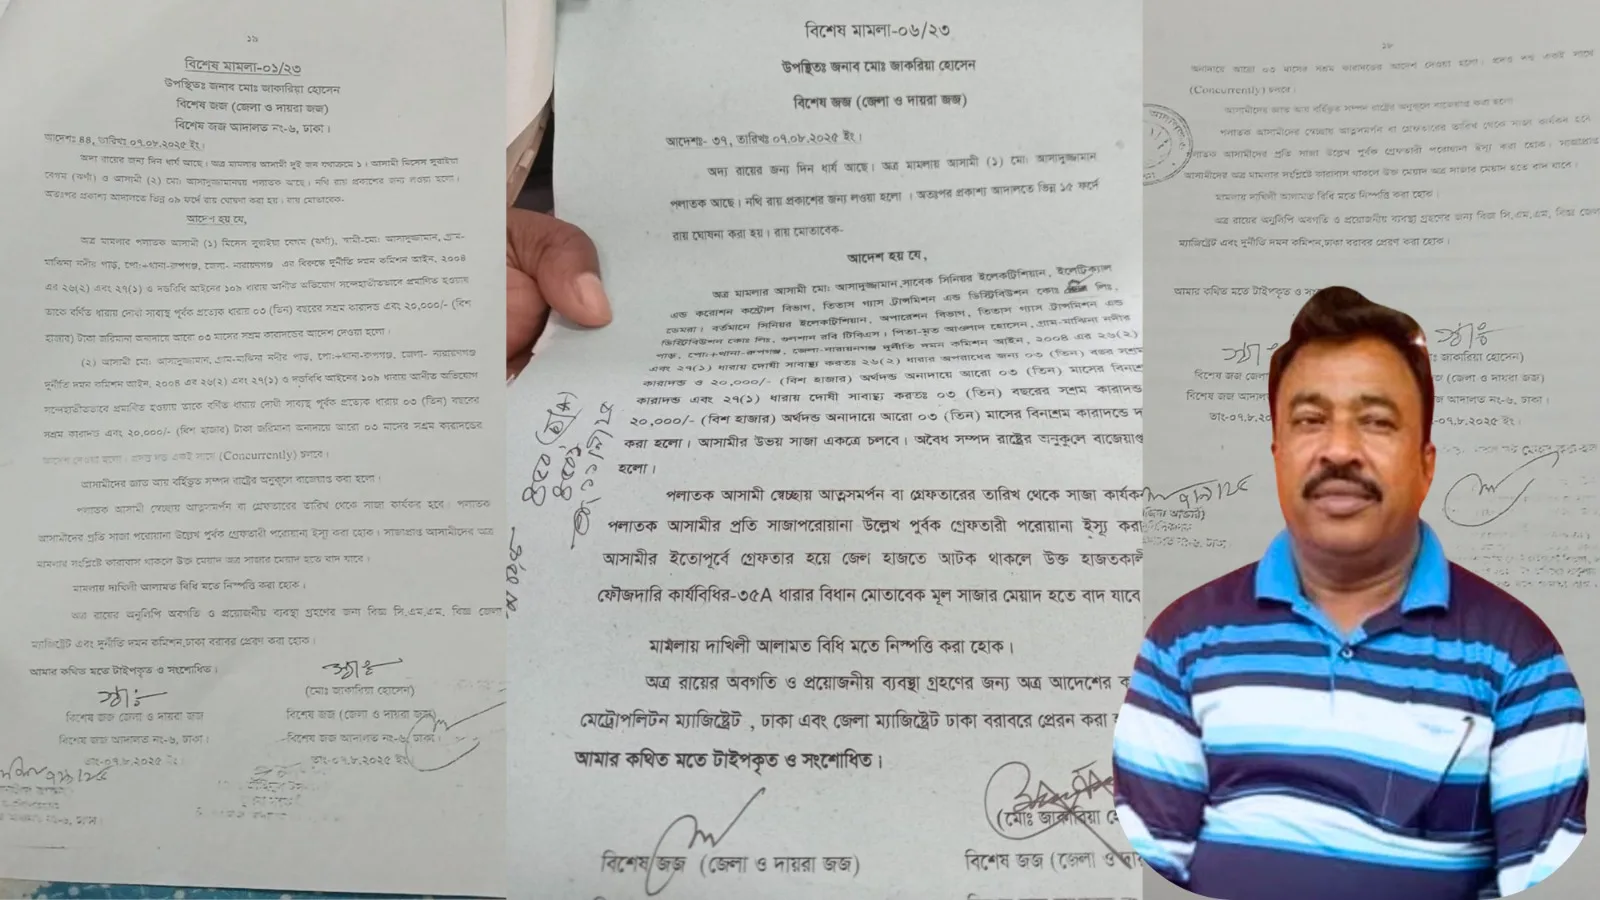 ১৯
বিশেষ মামলা-০১/২৩
উপস্থিতঃ জনাব মোঃ জাকারিয়া হোসেন
বিশেষ জজ (জেলা ও দায়রা জজ)
বিশেষ জজ আদালত নং-৬, ঢাকা।
আদেশঃ ৪৪, তারিখঃ ০৭.০৮.২০২৫ ইং।
অদ্য রায়ের জন্য দিন ধার্য আছে। অত্র মামলার আসামী দুই জন যথাক্রমে ১। আসামী মিসেস সুরাইয়া
বেগম (ঝর্ণা) ও আসামী (২) মো: আসাদুজ্জামানদ্বয় পলাতক আছে। নথি রায় প্রকাশের জন্য লওয়া হলো।
অতঃপর প্রকাশ্য আদালতে ভিন্ন ০৯ ফর্দে রায় ঘোষণা করা হয়। রায় মোতাবেক-
আদেশ হয় যে,
অত্র মামলার পলাতক আসামী (১) মিসেস সুরাইয়া বেগম (ঝর্ণা), স্বামী-মো: আসাদুজ্জামান, গ্রাম-
মাঝিনা নদীর পাড়, পো:+থানা-রুপগঞ্জ, জেলা- নারায়নগঞ্জ এর বিরুদ্ধে দুর্নীতি দমন কমিশন আইন, ২০০৪
এর ২৬(২) এবং ২৭(১) ও দন্ডবিধি আইনের ১০৯ ধারায় আনীত অভিযোগ সন্দেহাতীতভাবে প্রমাণিত হওয়ায়
তাকে বর্ণিত ধারায় দোষী সাব্যস্থ পূর্বক প্রত্যেক ধারায় ০৩ (তিন) বছরের সশ্রম কারাদন্ড এবং ২০,০০০/- (বিশ
হাজার) টাকা জরিমানা অনাদায়ে আরো ০৩ মাসের সশ্রম কারাদন্ডের আদেশ দেওয়া হলো।
(২) আসামী মো: আসাদুজ্জামান, গ্রাম-মাঝিনা নদীর পাড়, পো:+থানা-রুপগঞ্জ, জেলা- নারায়নগঞ্জ
দুর্নীতি দমন কমিশন আইন, ২০০৪ এর ২৬(২) এবং ২৭(১) ও দন্ডবিধি আইনের ১০৯ ধারায় আনীত অভিযোগ
সন্দেহাতীতভাবে প্রমাণিত হওয়ায় তাকে বর্ণিত ধারায় দোষী সাব্যস্থ পূর্বক প্রত্যেক ধারায় ০৩ (তিন) বছরের
সশ্রম কারাদন্ড এবং ২০,০০০/- (বিশ হাজার) টাকা জরিমানা অনাদায়ে আরো ০৩ মাসের সশ্রম কারাদন্ডের
আদেশ দেওয়া হলো। প্রদত্ত দন্ড একই সাথে (Concurrently) চলবে।
আসামীদের জ্ঞাত আয় বর্হিভূত সম্পদ রাষ্ট্রের অনুকূলে বাজেয়াপ্ত করা হলো।
পলাতক আসামীদের স্বেচ্ছায় আত্মসমর্পন বা গ্রেফতারের তারিখ থেকে সাজা কার্যকর হবে। পলাতক
আসামীদের প্রতি সাজা পরোয়ানা উল্লেখ পূর্বক গ্রেফতারী পরোয়ানা ইস্যু করা হোক। সাজাপ্রাপ্ত আসামীদের অত্র
মামলার সংশ্লিষ্টে কারাবাস থাকলে উক্ত মেয়াদ অত্র সাজার মেয়াদ হতে বাদ যাবে।
মামলায় দাখিলী আলামত বিধি মতে নিস্পত্তি করা হোক।
অত্র রায়ের অনুলিপি অবগতি ও প্রয়োজনীয় ব্যবস্থা গ্রহণের জন্য বিজ্ঞ সি,এম,এম, বিজ্ঞ জেলা
ম্যাজিষ্ট্রেট এবং দুর্নীতি দমন কমিশন,ঢাকা বরাবর প্রেরণ করা হোক।
আমার কথিত মতে টাইপকৃত ও সংশোধিত।
(মোঃ জাকারিয়া হোসেন)
বিশেষ জজ জেলা ও দায়রা জজ
বিশেষ জজ (জেলা ও দায়রা জজ)
বিশেষ জজ আদালত নং-৬, ঢাকা।
বিশেষ জজ আদালত নং-৬, ঢাকা।
তাং-০৭.৮.২০২৫ ইং
তাং-০৭.৮.২০২৫ ইং
বিশেষ মামলা-০৬/২৩
উপস্থিতঃ জনাব মোঃ জাকারিয়া হোসেন
বিশেষ জজ (জেলা ও দায়রা জজ)
আদেশঃ- ৩৭, তারিখঃ ০৭.০৮.২০২৫ ইং।
অদ্য রায়ের জন্য দিন ধার্য আছে। অত্র মামলায় আসামী (১) মো: আসাদুজ্জামান
পলাতক আছে। নথি রায় প্রকাশের জন্য লওয়া হলো । অতঃপর প্রকাশ্য আদালতে ভিন্ন ১৫ ফর্দে
রায় ঘোষনা করা হয়। রায় মোতাবেক-
আদেশ হয় যে,
অত্র মামলার আসামী মো: আসাদুজ্জামান,সাবেক সিনিয়র ইলেকট্রিশিয়ান, ইলেট্রিক্যাল
এন্ড করোশন কন্ট্রোল বিভাগ, তিতাস গ্যাস ট্রান্সমিশন এন্ড ডিস্ট্রিবিউশন কোং লিঃ,
ডেমরা। বর্তমানে সিনিয়র ইলেকট্রিশিয়ান, অপারেশন বিভাগ, তিতাস গ্যাস ট্রান্সমিশন এন্ড
ডিস্ট্রিবিউশন কোং লি:, গুলশান রবি টিবিএস। পিতা-মৃত আওলাদ হোসেন, গ্রাম-মাঝিনা নদীর
পাড়, পো:+থানা-রুপগঞ্জ, জেলা-নারায়নগঞ্জ দুর্নীতি দমন কমিশন আইন, ২০০৪ এর ২৬(২)
এবং ২৭(১) ধারায় দোষী সাব্যস্থ করতঃ ২৬(২) ধারার অপরাধের জন্য ০৩ (তিন) বছর সশ্রম
কারাদন্ড ও ২০,০০০/- (বিশ হাজার) অর্থদন্ড অনাদায়ে আরো ০৩ (তিন) মাসের বিনাশ্রম
কারাদন্ড এবং ২৭(১) ধারায় দোষী সাব্যস্থ্য করতঃ ০৩ (তিন) বছরের সশ্রম কারাদন্ড
২০,০০০/- (বিশ হাজার) অর্থদন্ড অনাদায়ে আরো ০৩ (তিন) মাসের বিনাশ্রম কারাদন্ডে দ
করা হলো। আসামীর উভয় সাজা একত্রে চলবে। অবৈধ সম্পদ রাষ্ট্রের অনুকূলে বাজেয়াপ্ত
হলো।
পলাতক আসামী স্বেচ্ছায় আত্মসমর্পন বা গ্রেফতারের তারিখ থেকে সাজা কার্যকর
পলাতক আসামীর প্রতি সাজাপরোয়ানা উল্লেখ পূর্বক গ্রেফতারী পরোয়ানা ইস্যু করা
আসামীর ইতোপূর্বে গ্রেফতার হয়ে জেল হাজতে আটক থাকলে উক্ত হাজতকাল
ফৌজদারি কার্যবিধির-৩৫A ধারার বিধান মোতাবেক মূল সাজার মেয়াদ হতে বাদ যাবে
মামলায় দাখিলী আলামত বিধি মতে নিস্পত্তি করা হোক।
অত্র রায়ের অবগতি ও প্রয়োজনীয় ব্যবস্থা গ্রহণের জন্য অত্র আদেশের ক
মেট্রোপলিটন ম্যাজিষ্ট্রেট , ঢাকা এবং জেলা ম্যাজিষ্ট্রেট ঢাকা বরাবরে প্রেরন করা
আমার কথিত মতে টাইপকৃত ও সংশোধিত।
(মোঃ জাকারিয়া হো
বিশেষ জজ (জেলা ও দায়রা জজ)
বিশেষ জজ (জেলা ও দায়র
১৮
অনাদায়ে আরো ০৩ মাসের সশ্রম কারাদন্ডের আদেশ দেওয়া হলো। প্রদত্ত দন্ড একই সাথে
(Concurrently) চলবে।
আসামীদের জ্ঞাত আয় বর্হিভূত সম্পদ রাষ্ট্রের অনুকূলে বাজেয়াপ্ত করা হলো
পলাতক আসামীদের স্বেচ্ছায় আত্মসমর্পন বা গ্রেফতারের তারিখ থেকে সাজা কার্যকর হবে
পলাতক আসামীদের প্রতি সাজা উল্লেখ পূর্বক গ্রেফতারী পরোয়ানা ইস্যু করা হোক। সাজাপ্রাপ্ত
আসামীদের অত্র মামলার সংশ্লিষ্টে কারাবাস থাকলে উক্ত মেয়াদ অত্র সাজার মেয়াদ হতে বাদ যাবে।
মামলায় দাখিলী আলামত বিধি মতে নিস্পত্তি করা হোক।
অত্র রায়ের অনুলিপি অবগতি ও প্রয়োজনীয় ব্যবস্থা গ্রহণের জন্য বিজ্ঞ সি,এম,এম, বিজ্ঞ জেল
ম্যাজিষ্ট্রেট এবং দুর্নীতি দমন কমিশন,ঢাকা বরাবর প্রেরণ করা হোক।
আমার কথিত মতে টাইপকৃত ও সংশ
াঃ জাকারিয়া হোসেন)
বিশেষ জজ জেল
(জেলা ও দায়রা জজ)
বিশেষ জজ আদ
আদালত নং-৬, ঢাকা।
তাং-০৭.৮.২০
-০৭.৮.২০২৫ ইং।